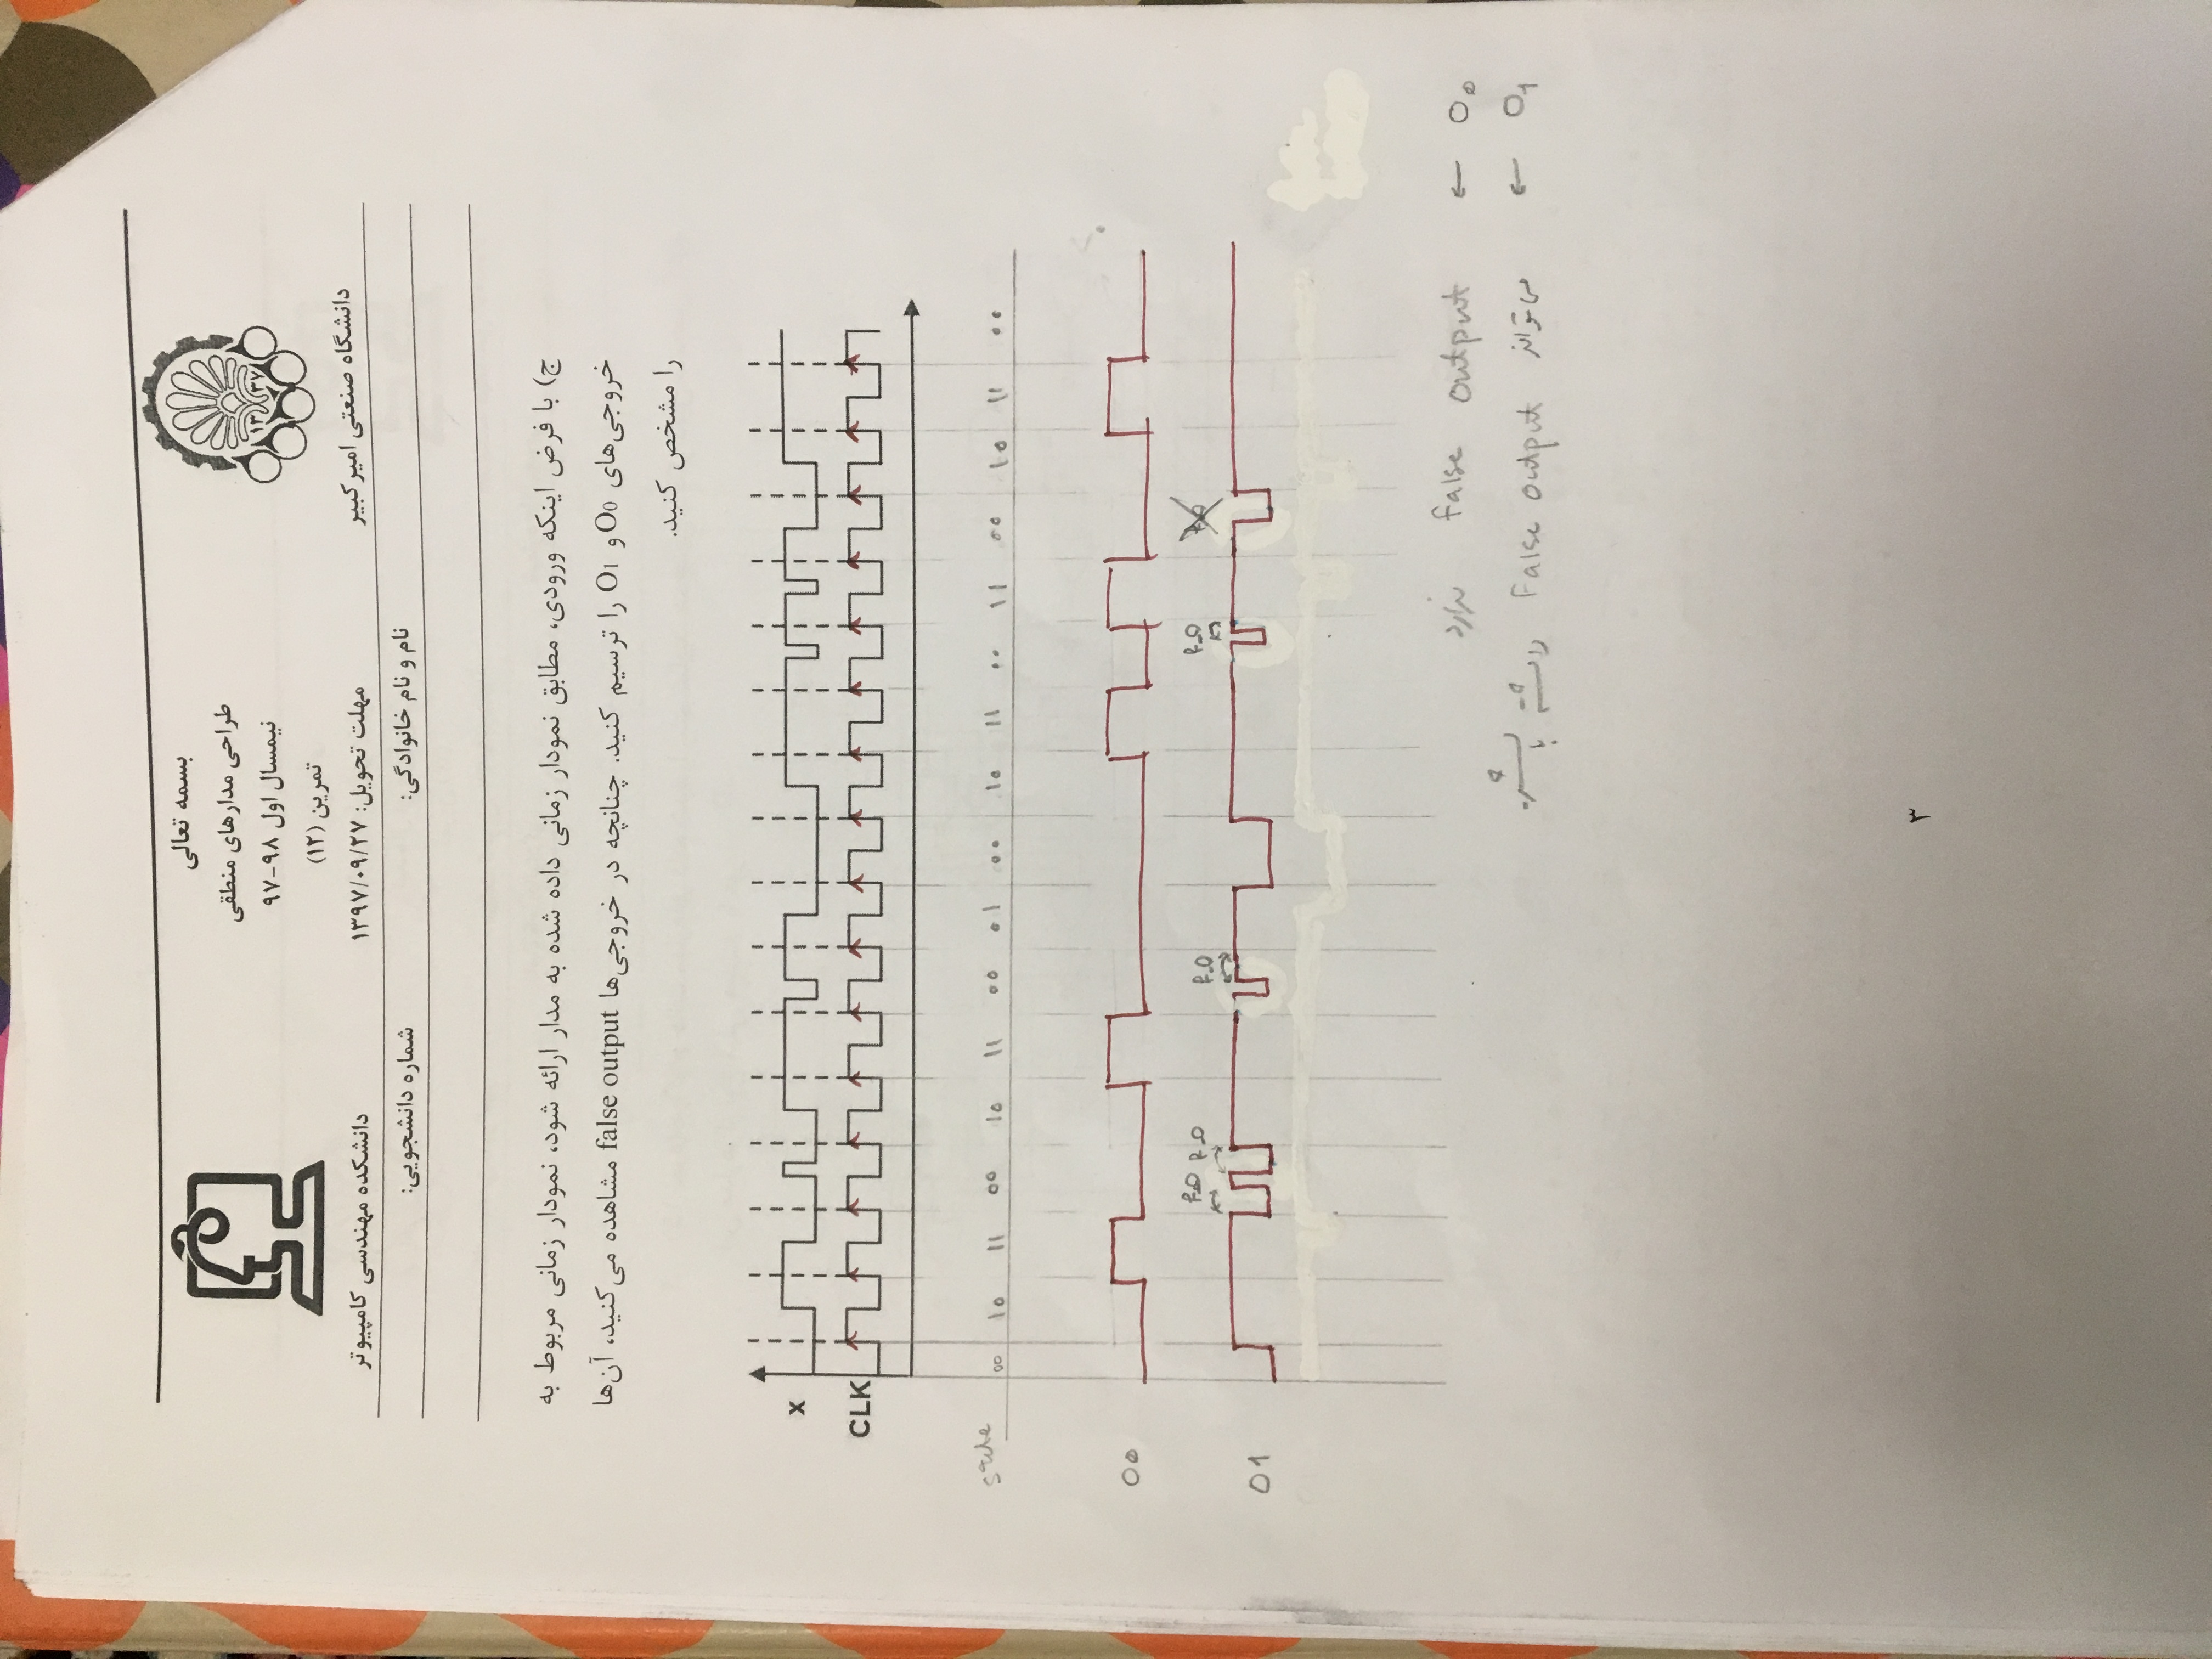 بسمه تعالی
طراحی مدارهای منطقی
نیمسال اول ۹۸-۹۷
تمرین (۱۲)
مهلت تحویل: ۱۳۹۷/۰۹/۲۷
۱۳ ۳۷
دانشگاه صنعتی امیرکبیر
دانشکده مهندسی کامپیوتر
نام و نام خانوادگی: شماره دانشجویی:
ج) با فرض اینکه ورودی، مطابق نمودار زمانی داده شده به مدار ارائه شود، نمودار زمانی مربوط به
خروجی‌های O0 و O1 را ترسیم کنید. چنانچه در خروجی‌ها false output مشاهده می‌کنید، آن‌ها
را مشخص کنید.
x
CLK
state 00 10 11 00 10 11 00 01 00 10 11 00 11 00 10 11 00
O0
F.O F.O F.O F.O
O1
O0 ← False output ندارد
O1 ← می‌تواند False output داشته باشد
۳